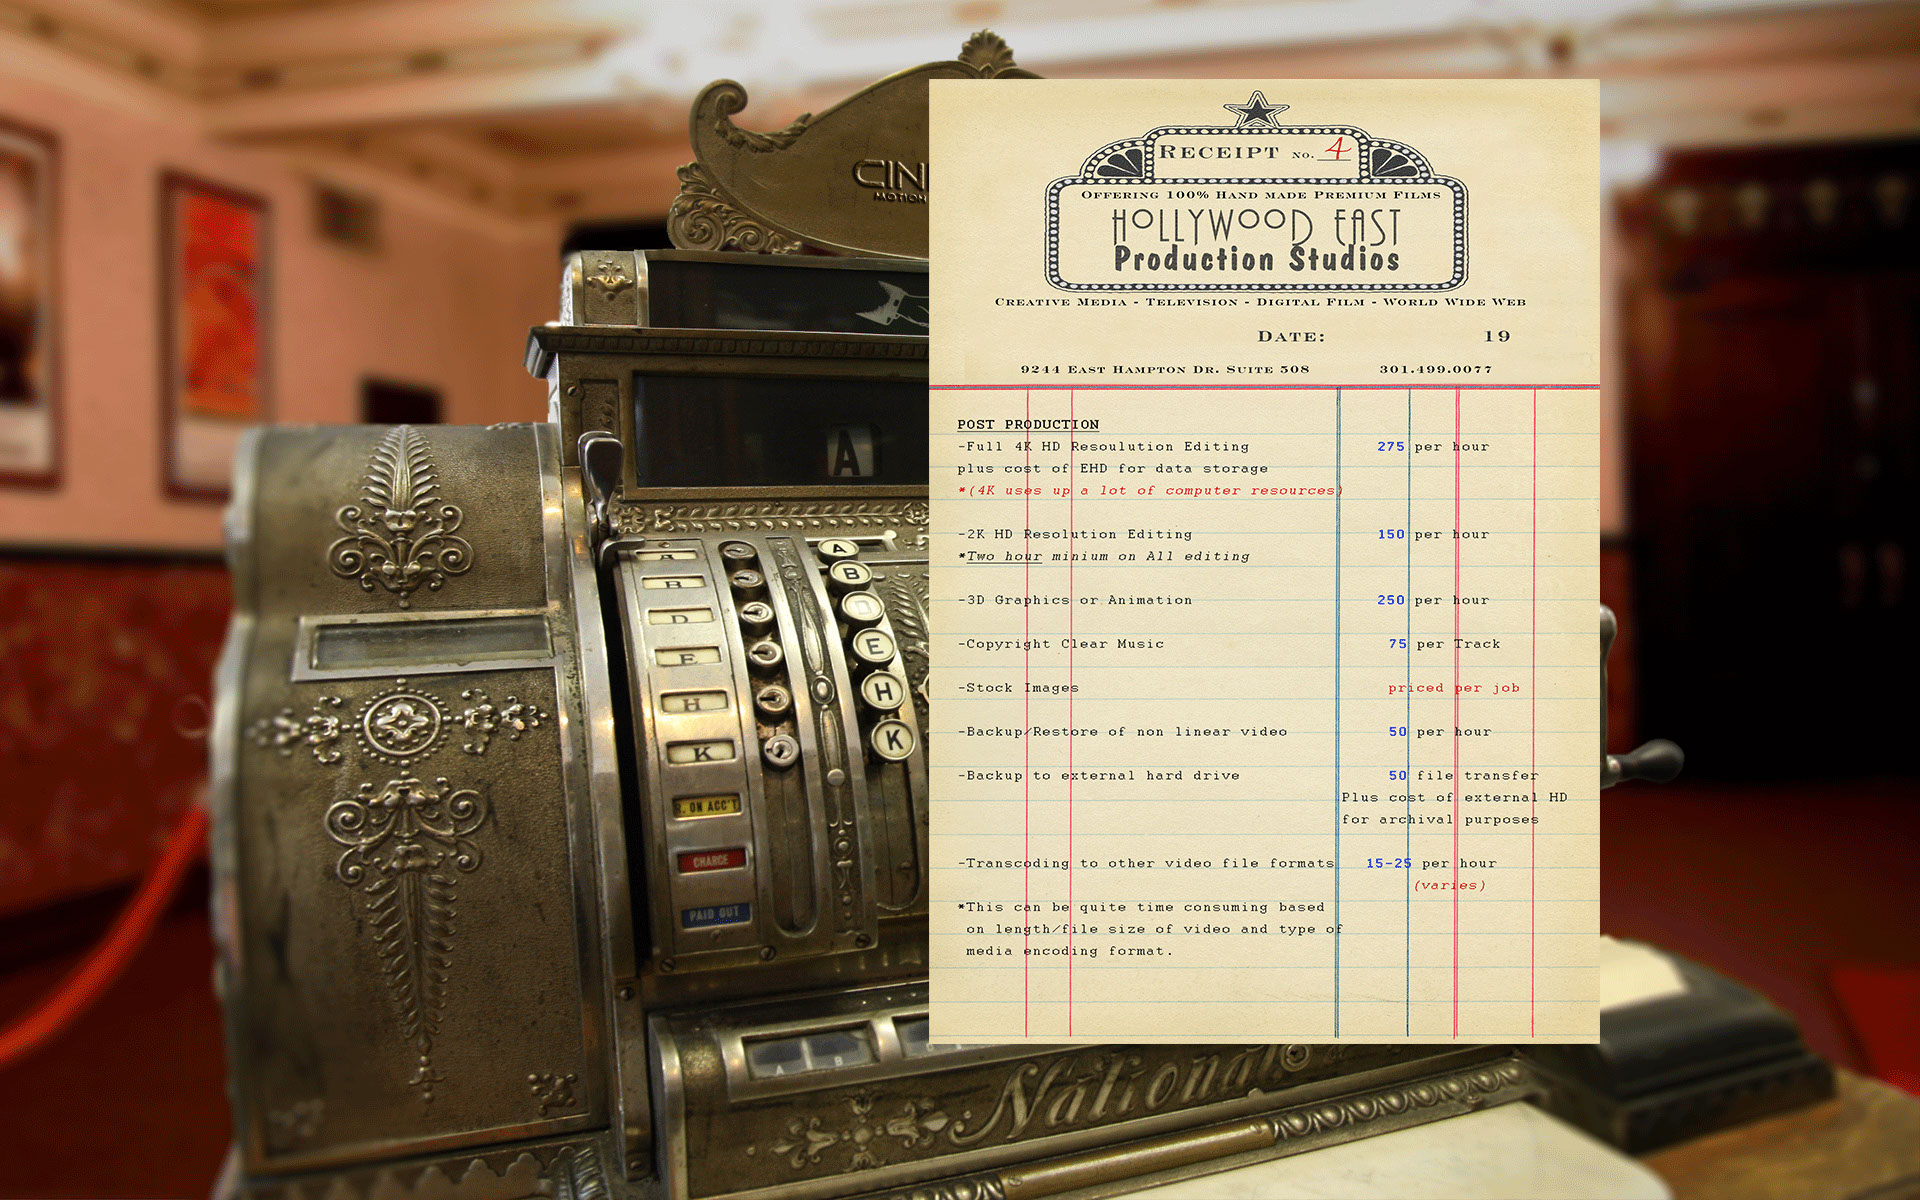 CIN
MOTION
A
A
B
D
E
H
K
R. ON ACC'T
CHARGE
PAID OUT
A
B
D
E
H
K
A B
National
RECEIPT NO. 4
OFFERING 100% HAND MADE PREMIUM FILMS
HOLLYWOOD EAST
Production Studios
CREATIVE MEDIA - TELEVISION - DIGITAL FILM - WORLD WIDE WEB
DATE: 19
9244 EAST HAMPTON DR. SUITE 508 301.499.0077
POST PRODUCTION
-Full 4K HD Resoulution Editing 275 per hour
plus cost of EHD for data storage
*(4K uses up a lot of computer resources)
-2K HD Resolution Editing 150 per hour
*Two hour minium on All editing
-3D Graphics or Animation 250 per hour
-Copyright Clear Music 75 per Track
-Stock Images priced per job
-Backup/Restore of non linear video 50 per hour
-Backup to external hard drive 50 file transfer
Plus cost of external HD
for archival purposes
-Transcoding to other video file formats 15-25 per hour
(varies)
*This can be quite time consuming based
on length/file size of video and type of
media encoding format.